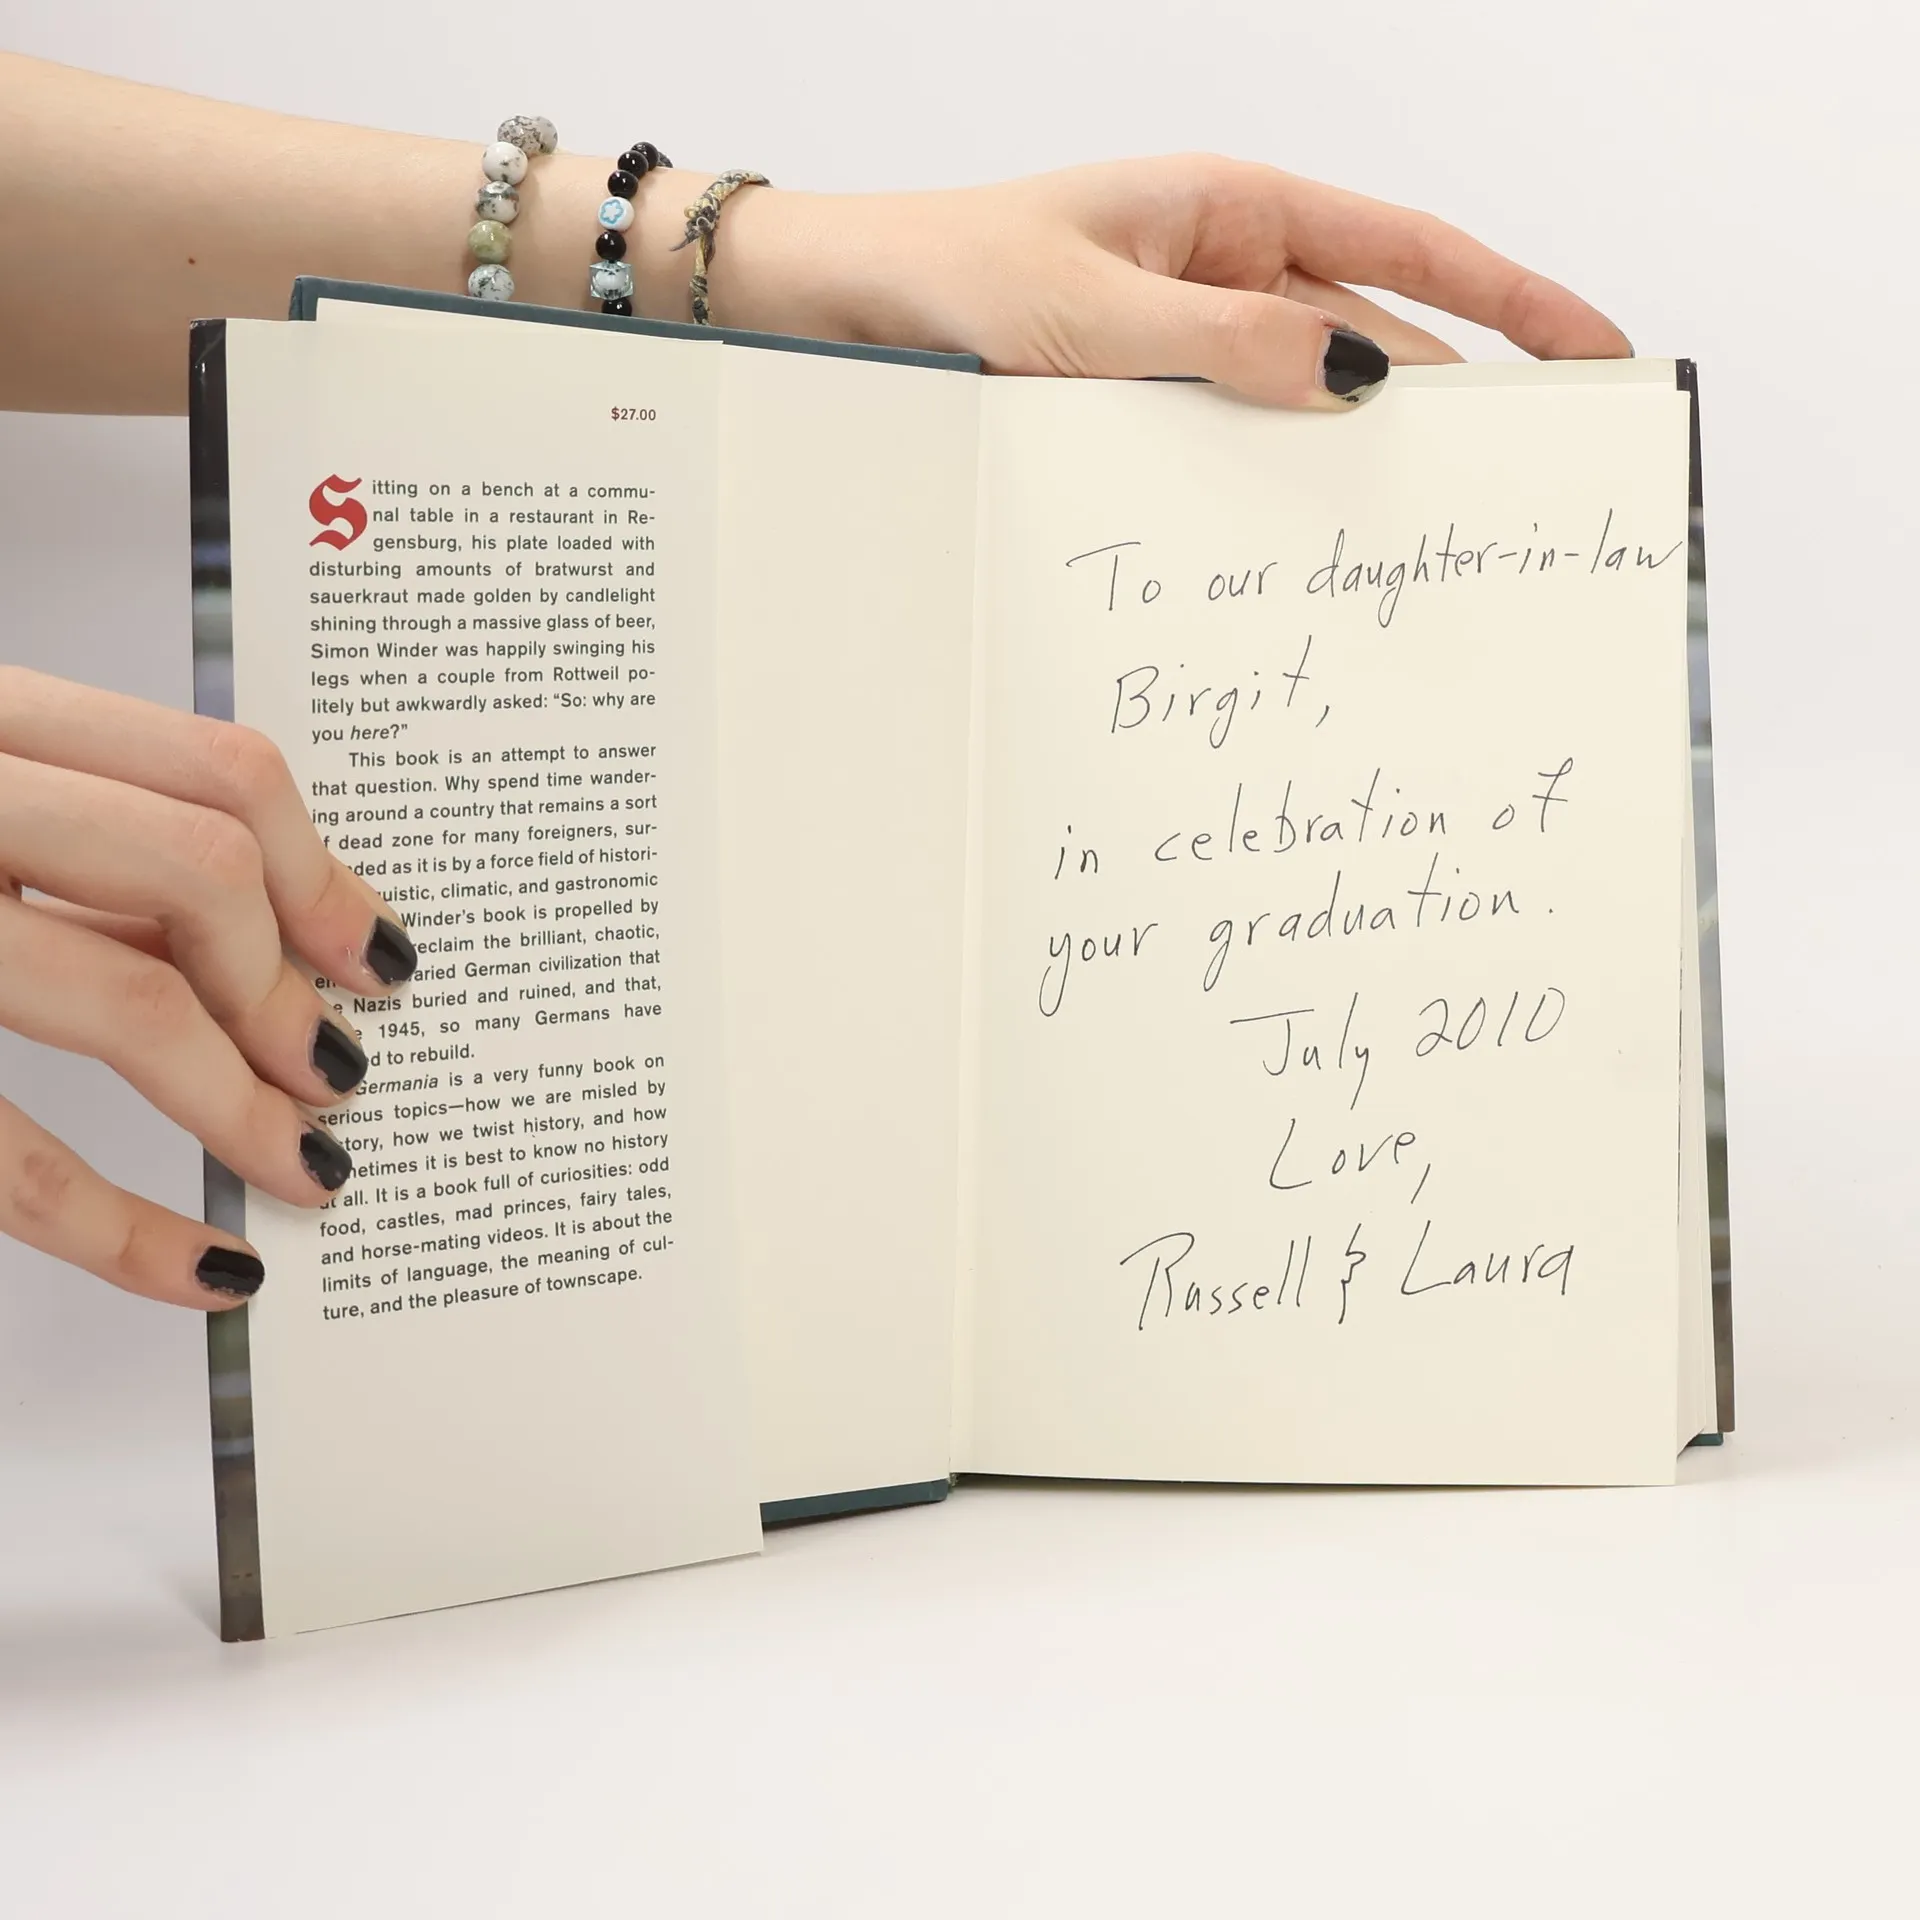 $27.00
Sitting on a bench at a commu-
nal table in a restaurant in Re-
gensburg, his plate loaded with
disturbing amounts of bratwurst and
sauerkraut made golden by candlelight
shining through a massive glass of beer,
Simon Winder was happily swinging his
legs when a couple from Rottweil po-
litely but awkwardly asked: “So: why are
you here?”
This book is an attempt to answer
that question. Why spend time wander-
ing around a country that remains a sort
dead zone for many foreigners, sur-
as it is by a force field of histori-
climatic, and gastronomic
Winder’s book is propelled by
the brilliant, chaotic,
German civilization that
Nazis buried and ruined, and that,
1945, so many Germans have
to rebuild.
Germania is a very funny book on
serious topics—how we are misled by
how we twist history, and how
it is best to know no history
all. It is a book full of curiosities: odd
food, castles, mad princes, fairy tales,
and horse-mating videos. It is about the
limits of language, the meaning of cul-
ture, and the pleasure of townscape.
To our daughter-in-law
Birgit,
in celebration of
your graduation.
July 2010
Love,
Russell & Laura